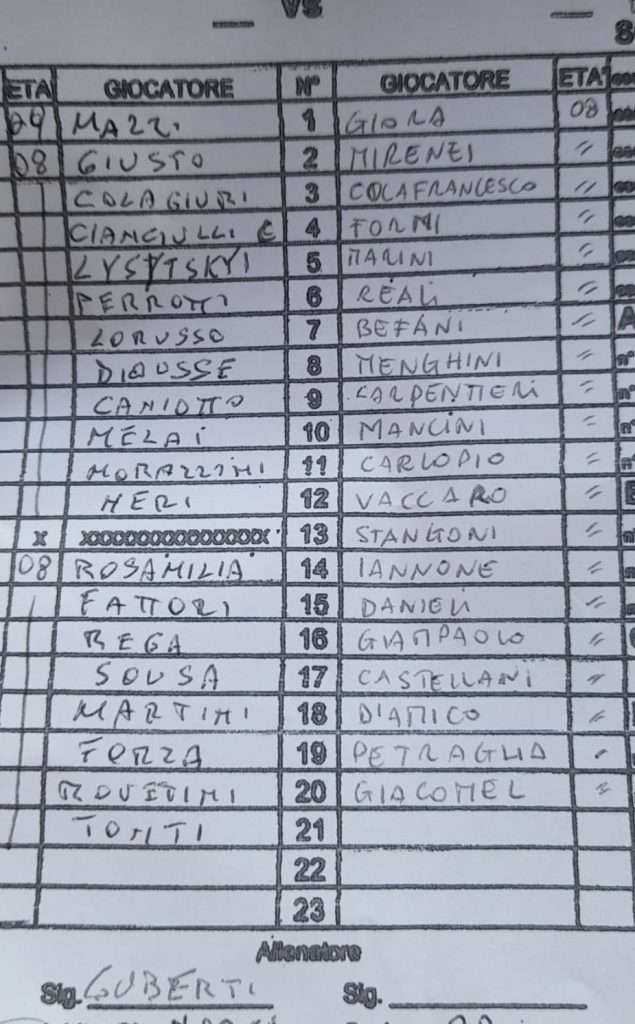 VS
ETA GIOCATORE N° GIOCATORE ETA'
09 MAZZI 1 GIORA 08
08 GIUSTO 2 MIRENEI "
COLAGIURI 3 COLAFRANCESCO "
CIANCIULLI C 4 FORMI "
LYSYTSKYI 5 MARINI "
PERROTTI 6 REALI "
LORUSSO 7 BEFANI "
DIOUSSE 8 MENGHINI "
CANIOTTO 9 CARPENTIERI "
MELAI 10 MANCINI "
MORAZZINI 11 CARLOPIO "
NERI 12 VACCARO "
x xxxxxxxxxxxxxxx 13 STANGONI "
08 ROSAMILIA 14 IANNONE "
FATTORI 15 DANIELI "
REGA 16 GIAMPAOLO "
SOUSA 17 CASTELLANI "
MARTINI 18 D'AMICO "
FORZA 19 PETRAGLIA "
20 GIACOMEL "
TOMTI 21
22
23
Allenatore
Sig. GUBERTI Sig.